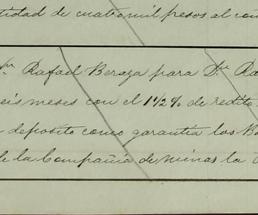 tidad de cuatro mil pesos al
Rafael Beraza para Dn. Ra
eis meses con el 1 1/2 % de redito
deposito como garantia los
de la Compañia de minas la